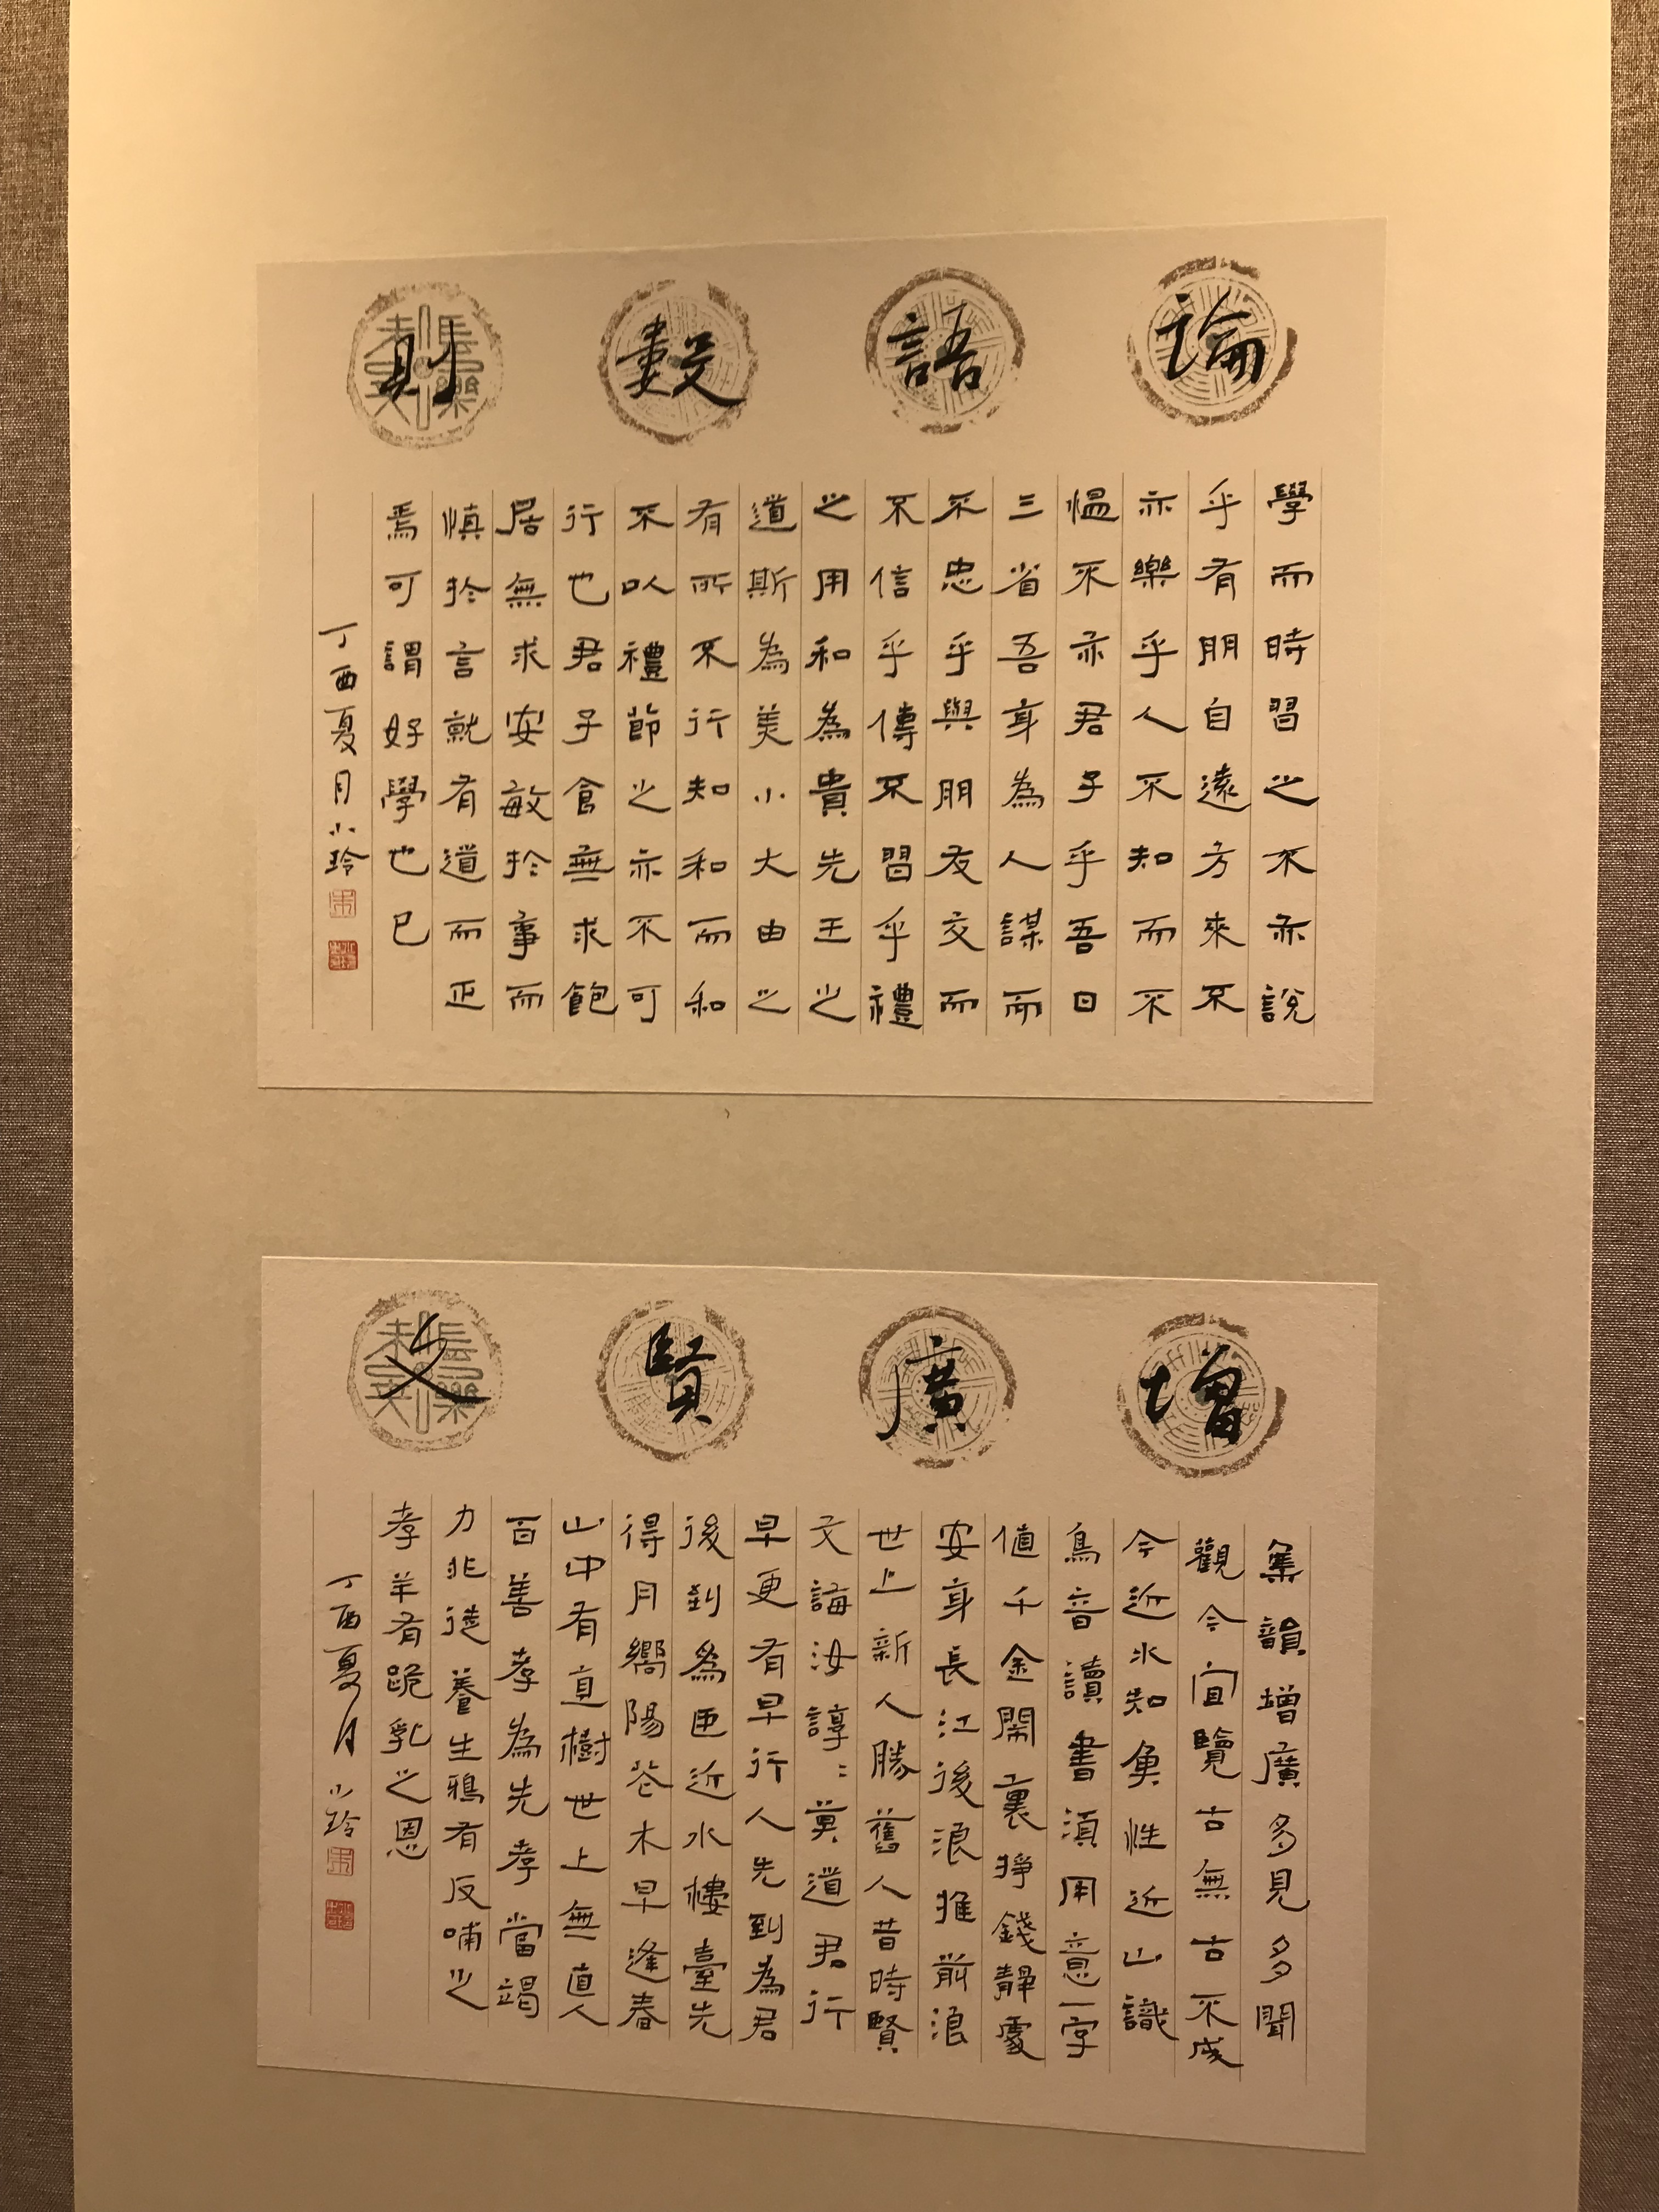 論語數則
學而時習之不亦說
乎有朋自遠方來不
亦樂乎人不知而不
愠不亦君子乎吾日
三省吾身為人謀而
不忠乎與朋友交而
不信乎傳不習乎禮
之用和為貴先王之
道斯為美小大由之
有所不行知和而和
不以禮節之亦不可
行也君子食無求飽
居無求安敏於事而
慎於言就有道而正
焉可謂好學也已
丁酉夏月小玲
增廣賢文
集韻增廣多見多聞
觀今宜覽古無古不成
今近水知魚性近山識
鳥音讀書須用意一字
值千金鬧裏掙錢靜處
安身長江後浪推前浪
世上新人勝舊人昔時賢
文誨汝諄:莫道君行
早更有早行人先到為君
後到為臣近水樓臺先
得月嚮陽花木早逢春
山中有直樹世上無直人
百善孝為先孝當竭
力非徒養生鴉有反哺之
孝羊有跪乳之恩
丁酉夏月小玲